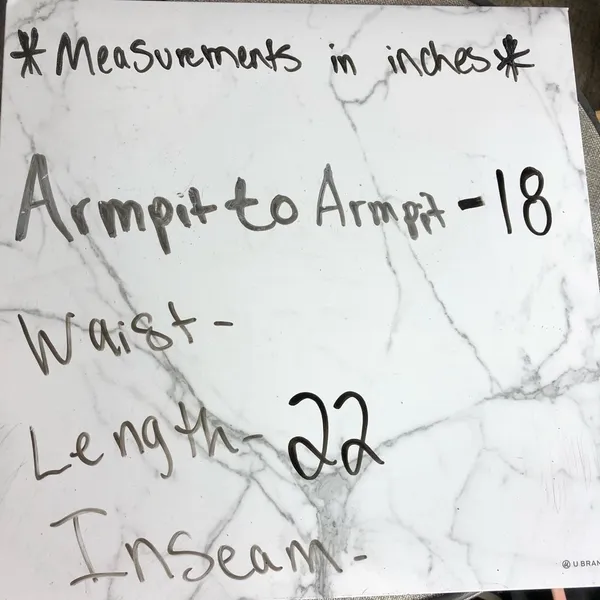 *Measurements in inches*
Armpit to Armpit - 18
Waist -
Length - 22
Inseam -
U BRAN